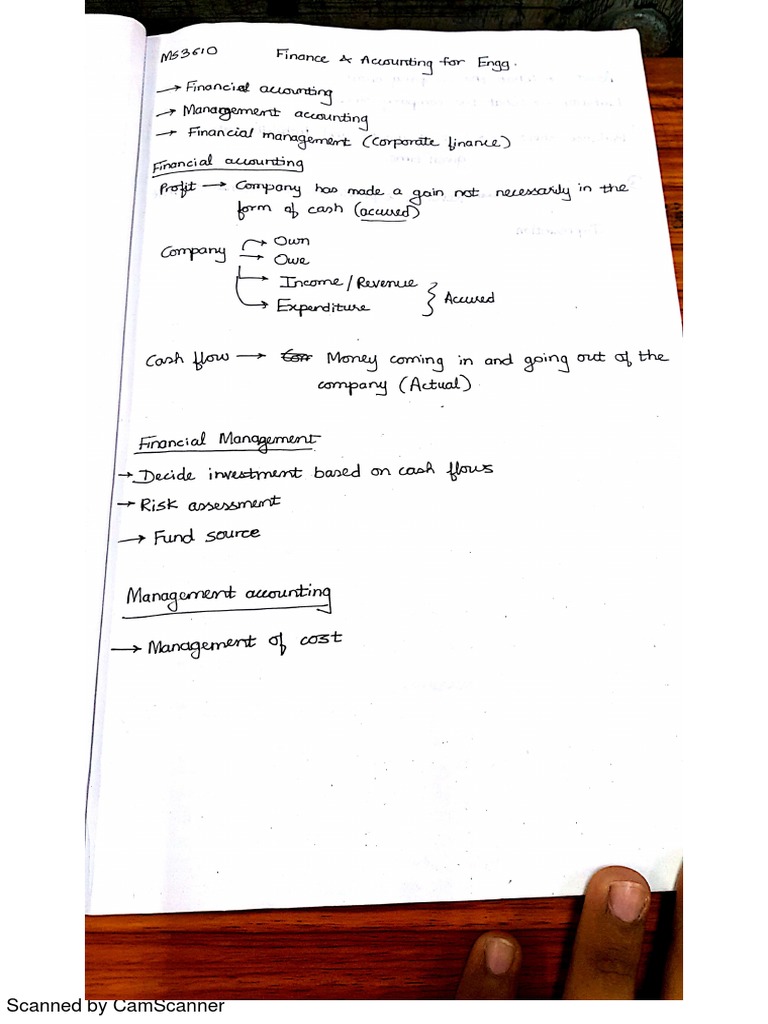 MS3610 Finance & Accounting for Engg.
→ Financial accounting
→ Management accounting
→ Financial management (Corporate finance)
Financial accounting
Profit → Company has made a gain not necessarily in the
form of cash (accured)
Company → Own
→ Owe
→ Income / Revenue
→ Expenditure } Accured
Cash flow → Money coming in and going out of the
company (Actual)
Financial Management
→ Decide investment based on cash flows
→ Risk assessment
→ Fund source
Management accounting
→ Management of cost
Scanned by CamScanner